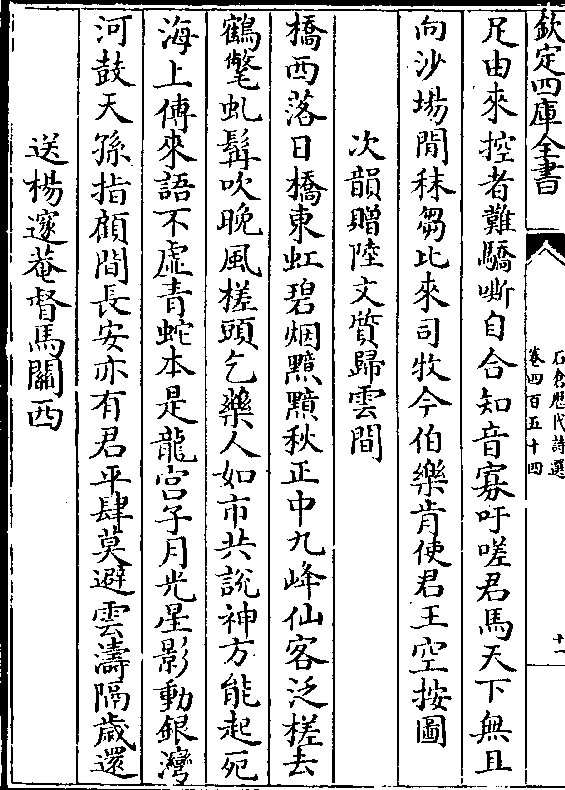 欽定四庫全書
石倉歴代詩選
卷四百五十四
十一
足由來控者難驕嘶自合知音寡吁嗟君馬天下無且
向沙場閒秣芻比來司牧今伯樂肯使君王空按圖
次韻贈陸文質歸雲間
橋西落日橋東虹碧烟㸃㸃秋正中九峰仙客泛槎去
鶴氅虬髯吹晚風槎頭乞藥人如市共說神方能起死
海上傳來語不虛青蛇本是龍宫子月光星影動銀灣
河鼓天孫指顧間長安亦有君平肆莫避雲濤隔歲還
送楊邃菴督馬關西